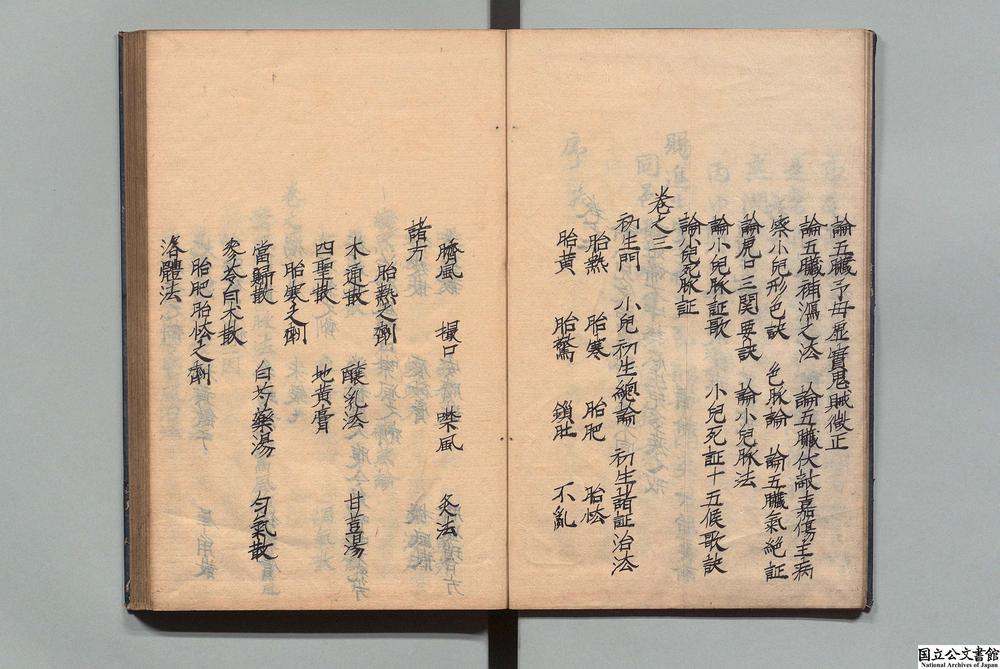 論五臟子母虛實鬼賊微正
論五臟補瀉之法 論五臟伏敵嘉傷主病
察小兒形色訣 色脉論 論五臟氣絶証
論虎口三関要訣 論小兒脉法
論小兒脉証歌 小兒死証十五候歌訣
論小兒死脉証
卷之三
初生門 小兒初生總論 初生諸証治法
胎熱 胎寒 胎肥 胎怯
胎黄 胎驚 鎖肚 不亂
臍風 撮口 噤風 灸法
諸方
胎熱之劑
木通散 釀乳法 甘荳湯
四聖散 地黃膏
胎寒之劑
當歸散 白芍藥湯 勻氣散
參苓白朮散
胎肥胎怯之劑
浴體法
国立公文書館
National Archives of Japan